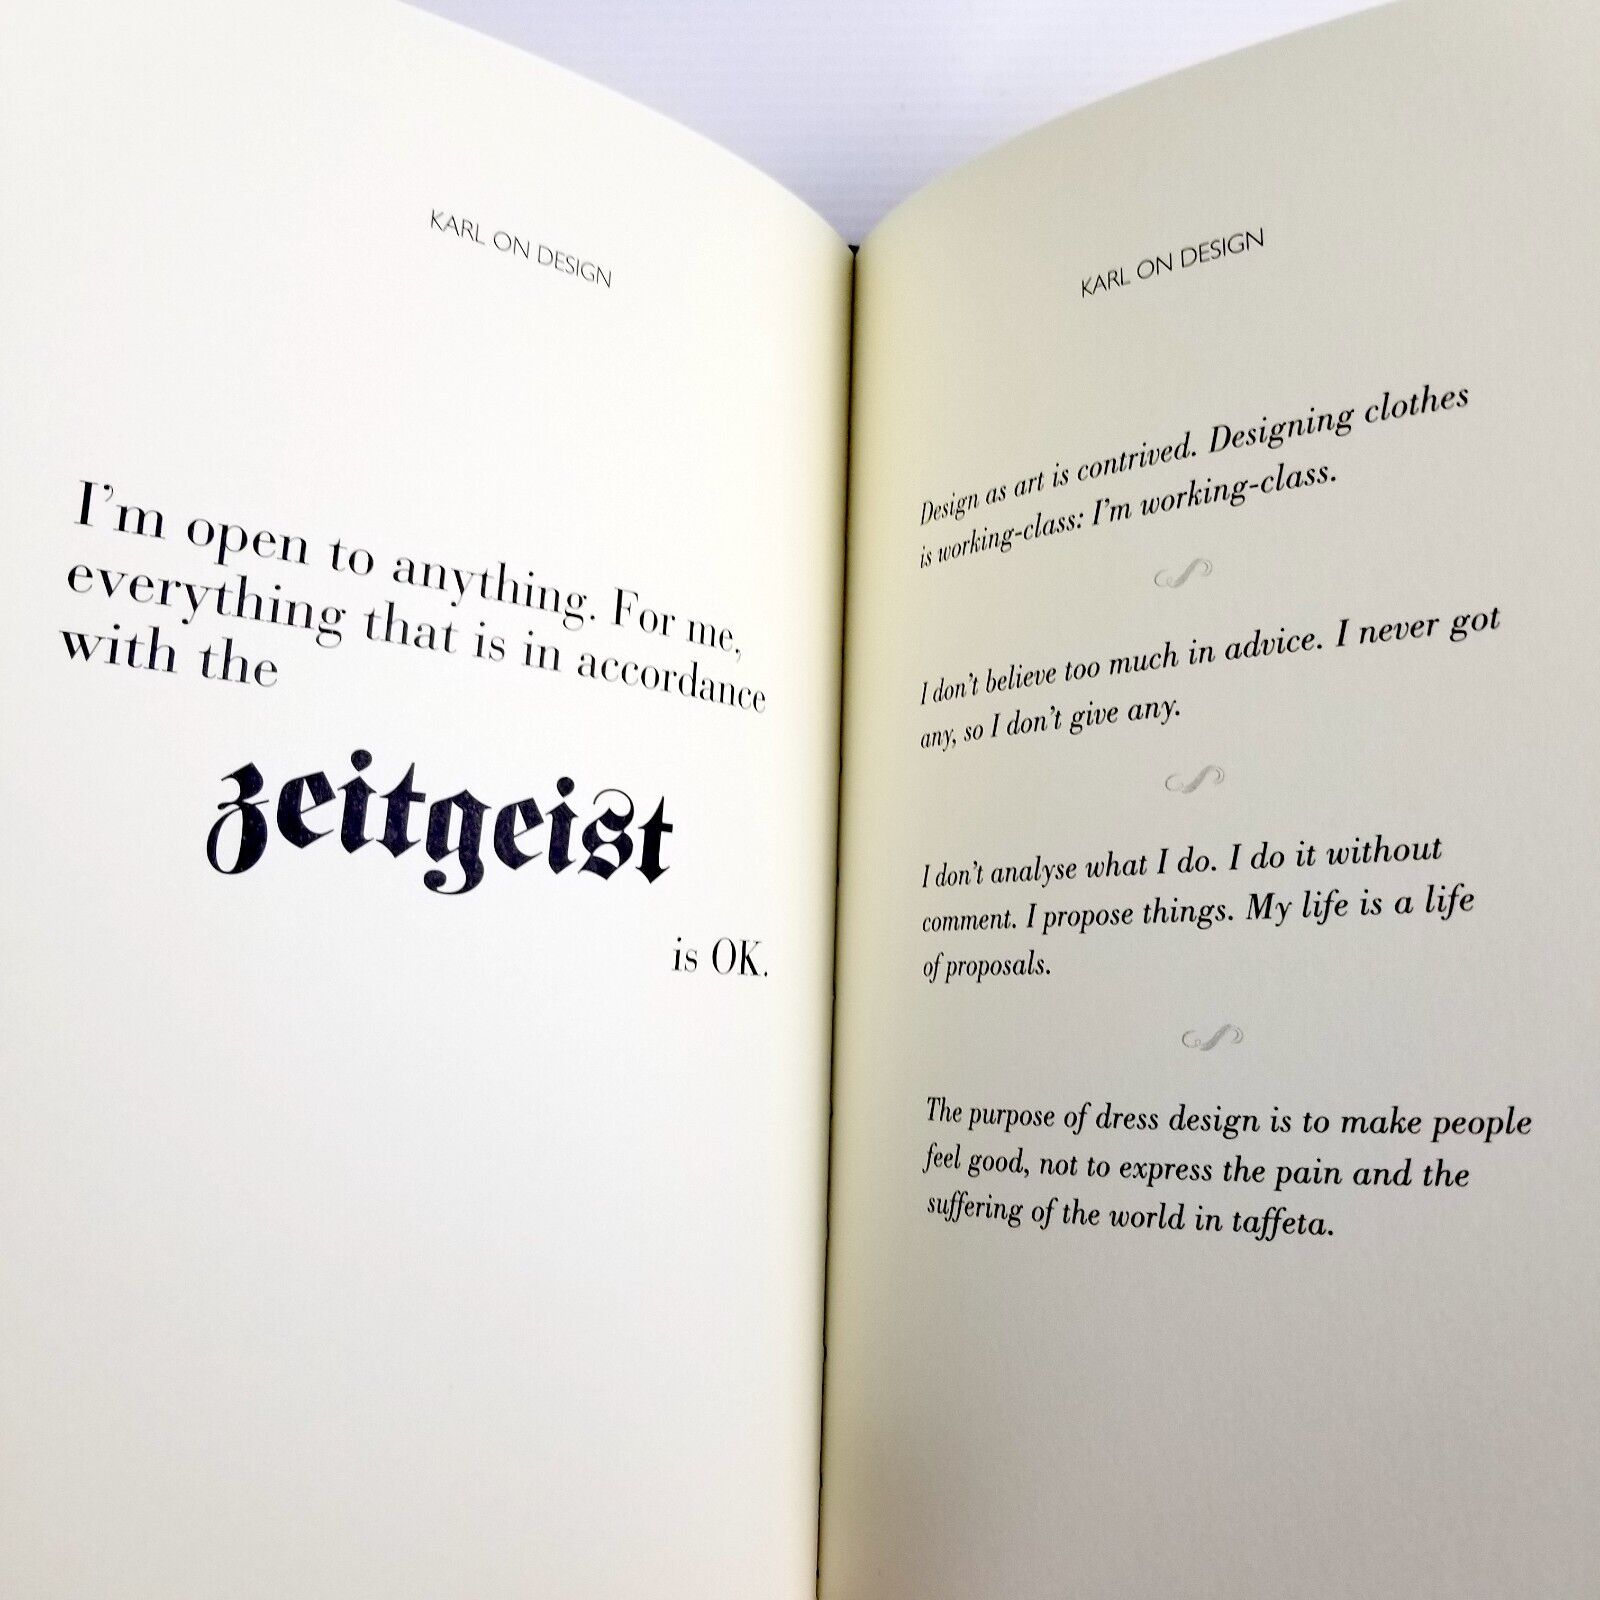 KARL ON DESIGN
I'm open to anything. For me,
everything that is in accordance
with the
zeitgeist
is OK.
KARL ON DESIGN
Design as art is contrived. Designing clothes
is working-class: I'm working-class.
I don't believe too much in advice. I never got
any, so I don't give any.
I don't analyse what I do. I do it without
comment. I propose things. My life is a life
of proposals.
The purpose of dress design is to make people
feel good, not to express the pain and the
suffering of the world in taffeta.